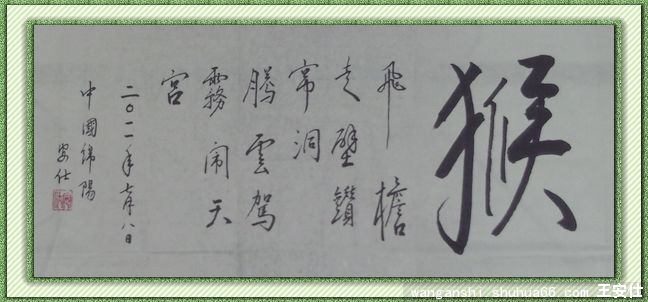 猴
飛檐
走壁鑽
帘洞
騰雲駕
霧闹天
宮
二〇一一年七月八日
中國绵陽
安仕
wanganshi.shuhua66.com 王安仕